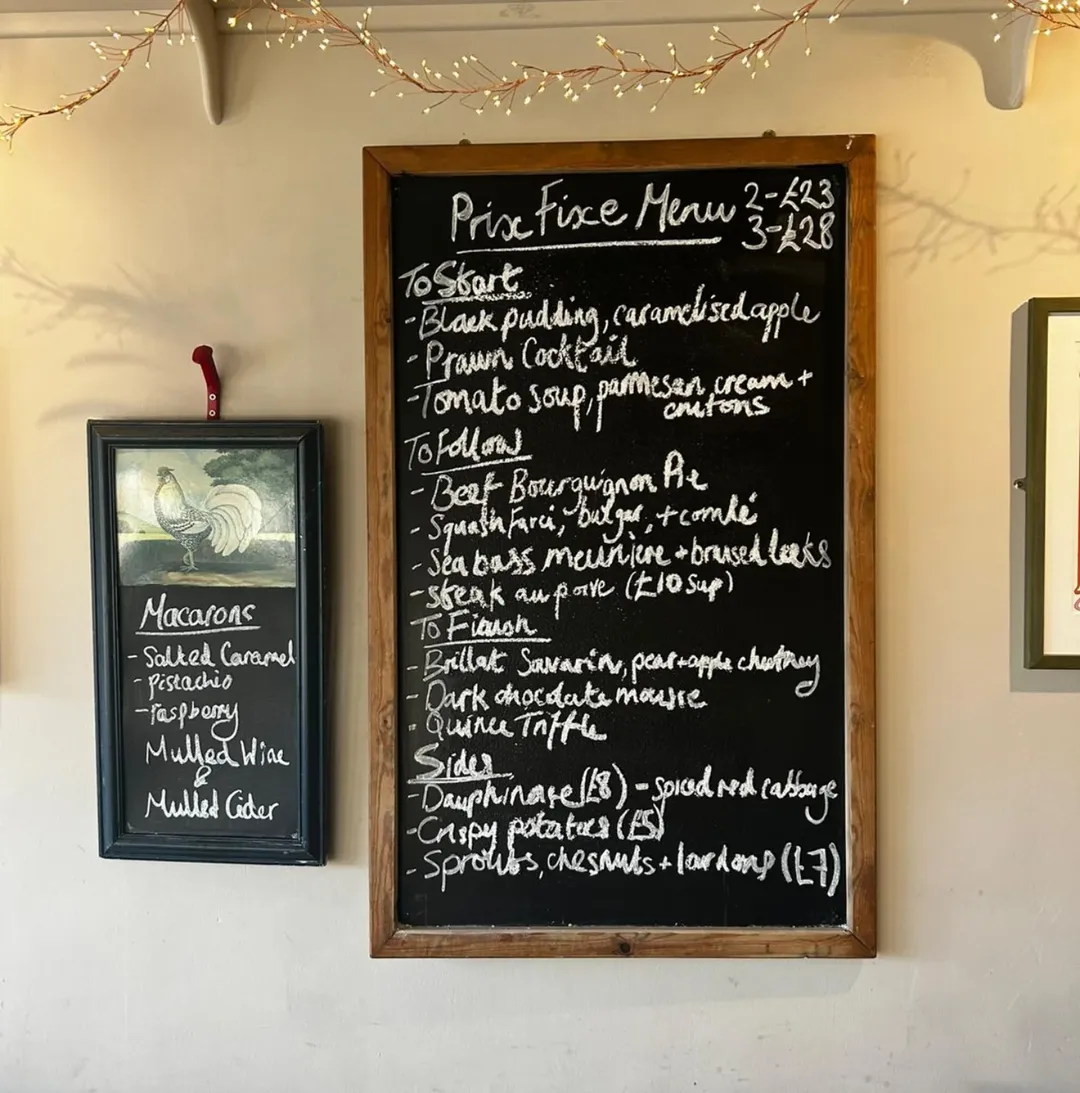 Prix Fixe Menu 2-£23
3-£28
To Start
- Black pudding, caramelised apple
- Prawn Cocktail
- Tomato Soup, parmesan cream +
crutons
To Follow
- Beef Bourguignon Pie
- Squash farci, bulgur, + comté
- Sea bass meuniere + braised leeks
- steak au poivre (£10 sup)
To Finish
- Brillat Savarin, pear + apple chutney
- Dark chocolate mousse
- Quince Triffle
Sides
- Dauphinoise (£8) - spiced red cabbage
- Crispy potatoes (£5)
- Sprouts, chesnuts + lardons (£7)
Macarons
- Salted Caramel
- pistachio
- raspberry
Mulled Wine
&
Mulled Cider